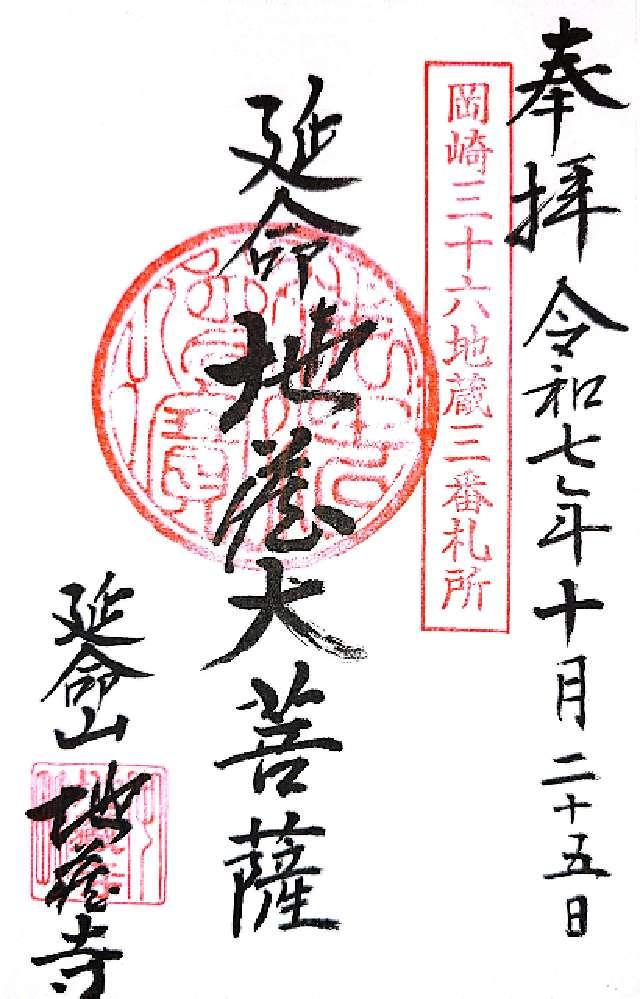 奉拝 令和七年十月二十五日
岡崎三十六地蔵三番札所
延命地蔵大菩薩
延命山地蔵寺